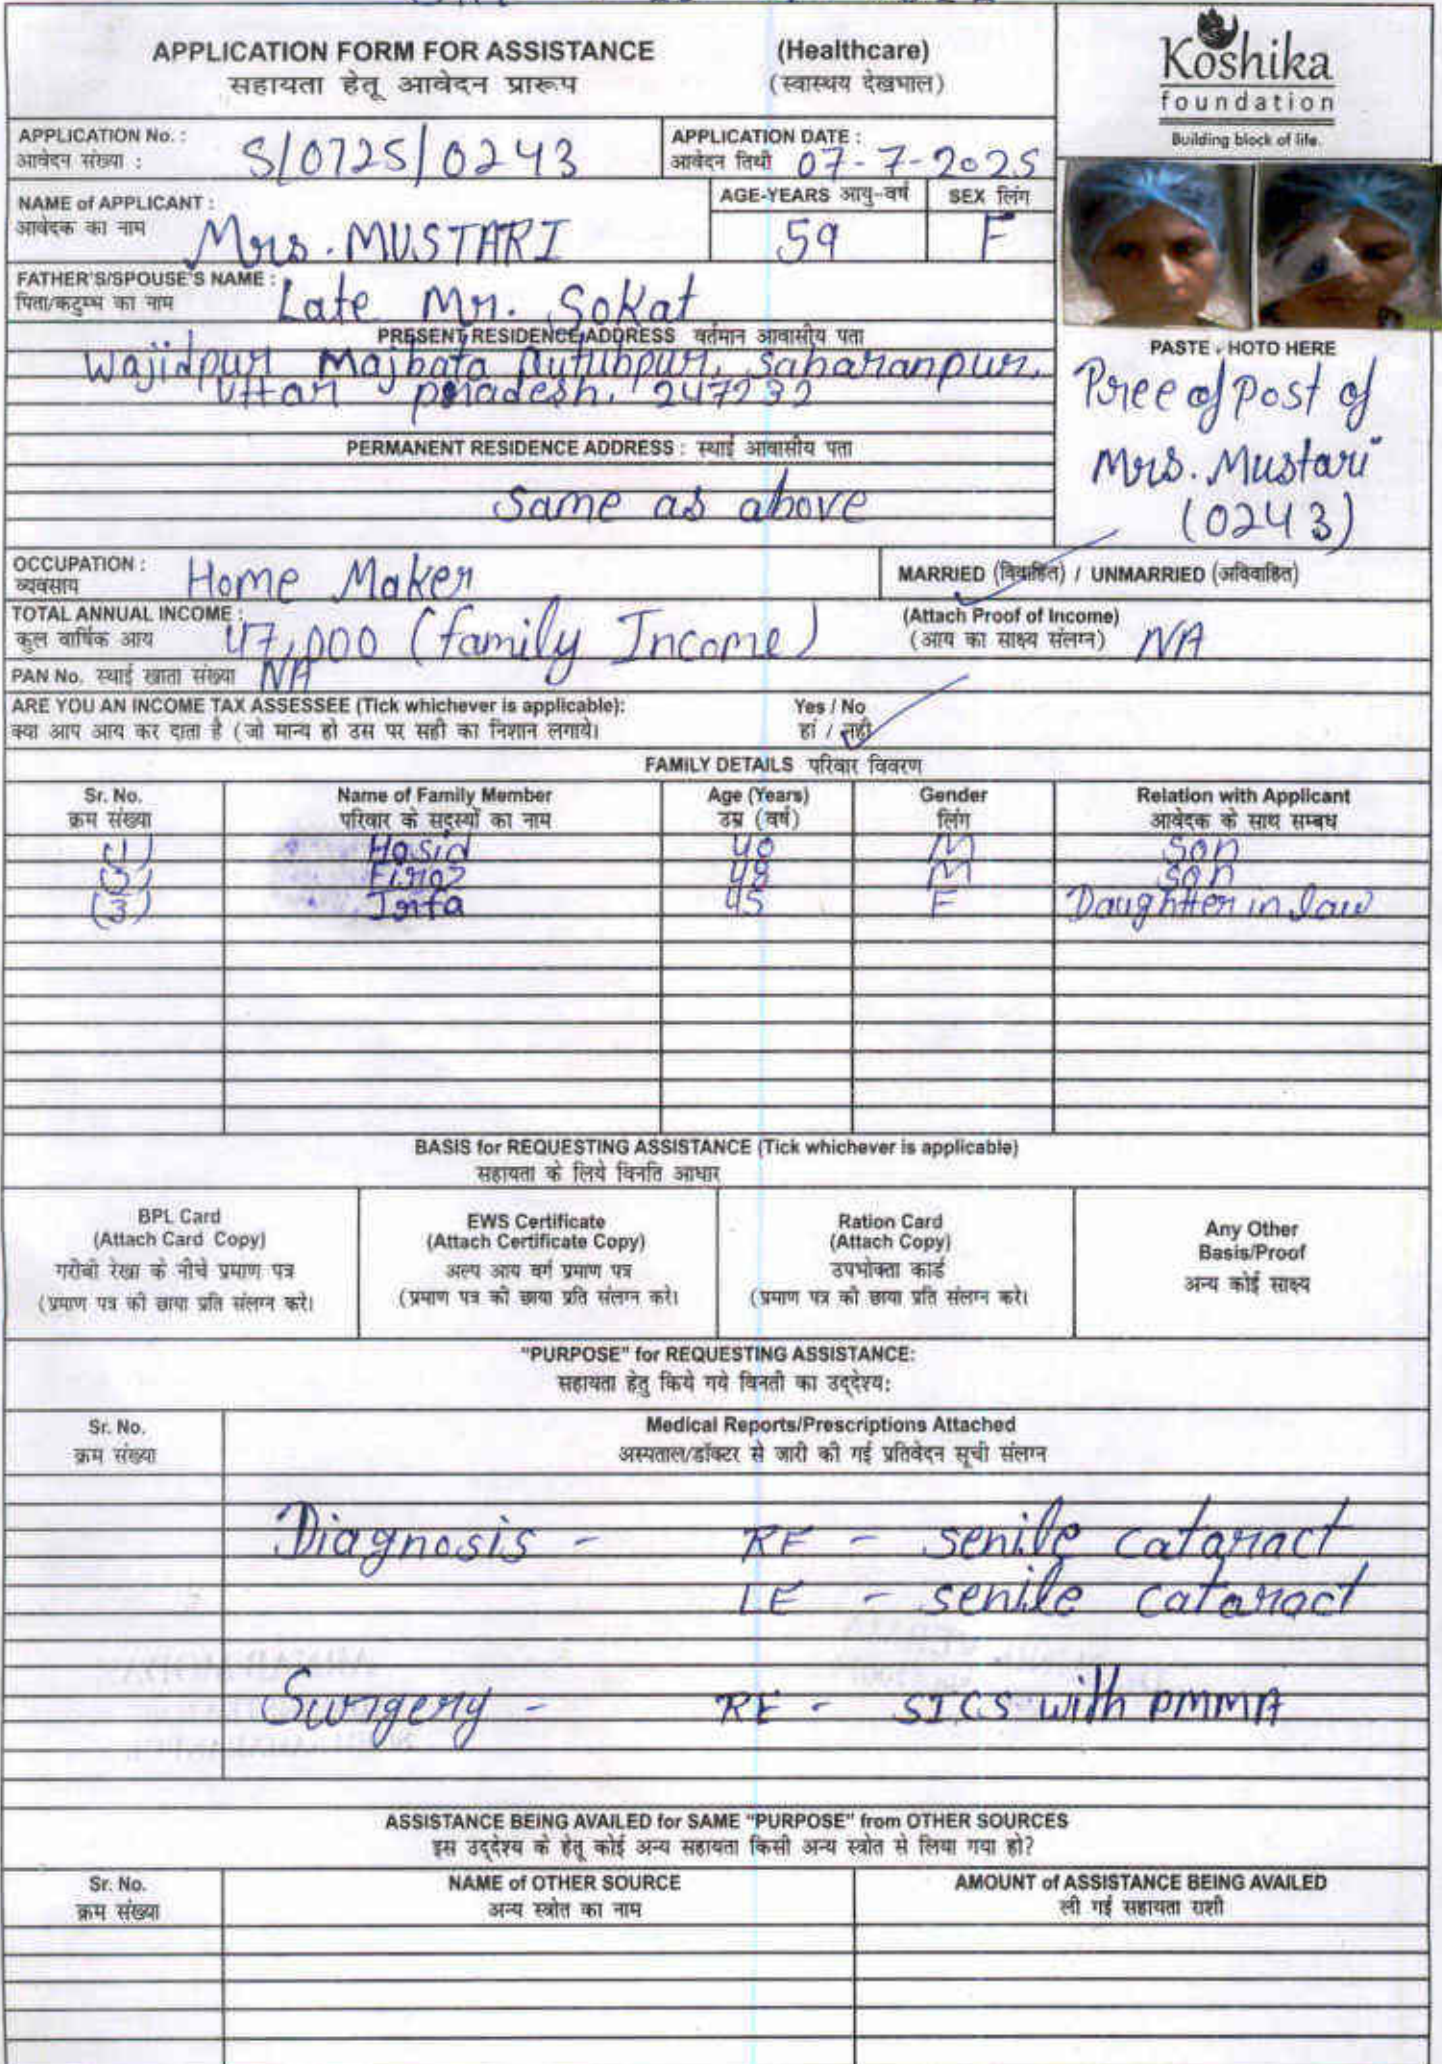 APPLICATION FORM FOR ASSISTANCE (Healthcare)
सहायता हेतू आवेदन प्रारूप (स्वास्थय देखभाल)
Koshika
foundation
Building block of life.
APPLICATION No. : S/0725/0243
आवेदन संख्या :
APPLICATION DATE :
आवेदन तिथी 07-7-2025
NAME of APPLICANT :
आवेदक का नाम Mrs. MUSTARI
AGE-YEARS आयु-वर्ष 59
SEX लिंग F
FATHER'S/SPOUSE'S NAME :
पिता/कटुम्ब का नाम Late Mr. Sokat
PRESENT RESIDENCE ADDRESS वर्तमान आवासीय पता
Wajidpur Majbata Qutubpur, Saharanpur,
Uttar pradesh, 247232
PASTE HOTO HERE
Pree of Post of
Mrs. Mustari
(0243)
PERMANENT RESIDENCE ADDRESS : स्थाई आवासीय पता
Same as above
OCCUPATION :
व्यवसाय Home Maker
MARRIED (विवाहित) / UNMARRIED (अविवाहित)
TOTAL ANNUAL INCOME :
कुल वार्षिक आय 47,000 (family Income)
(Attach Proof of Income)
(आय का साक्ष्य संलग्न) NA
PAN No. स्थाई खाता संख्या NA
ARE YOU AN INCOME TAX ASSESSEE (Tick whichever is applicable): Yes / No
क्या आप आय कर दाता है (जो मान्य हो उस पर सही का निशान लगाये। हां / नही
FAMILY DETAILS परिवार विवरण
Sr. No. Name of Family Member Age (Years) Gender Relation with Applicant
क्रम संख्या परिवार के सदस्यों का नाम उम्र (वर्ष) लिंग आवेदक के साथ सम्बध
(1) Hasid 40 M Son
(2) Firoz 48 M Son
(3) Irfa 45 F Daughter in law
BASIS for REQUESTING ASSISTANCE (Tick whichever is applicable)
सहायता के लिये विनति आधार
BPL Card
(Attach Card Copy)
गरीबी रेखा के नीचे प्रमाण पत्र
(प्रमाण पत्र की छाया प्रति संलग्न करे।
EWS Certificate
(Attach Certificate Copy)
अल्प आय वर्ग प्रमाण पत्र
(प्रमाण पत्र की छाया प्रति संलग्न करे।
Ration Card
(Attach Copy)
उपभोक्ता कार्ड
(प्रमाण पत्र की छाया प्रति संलग्न करे।
Any Other
Basis/Proof
अन्य कोई साक्ष्य
"PURPOSE" for REQUESTING ASSISTANCE:
सहायता हेतु किये गये विनती का उद्देश्य:
Sr. No. Medical Reports/Prescriptions Attached
क्रम संख्या अस्पताल/डॉक्टर से जारी की गई प्रतिवेदन सूची संलग्न
Diagnosis - RE - senile cataract
LE - senile cataract
Surgery - RE - SICS with PMMA
ASSISTANCE BEING AVAILED for SAME "PURPOSE" from OTHER SOURCES
इस उद्देश्य के हेतू कोई अन्य सहायता किसी अन्य स्त्रोत से लिया गया हो?
Sr. No. NAME of OTHER SOURCE AMOUNT of ASSISTANCE BEING AVAILED
क्रम संख्या अन्य स्त्रोत का नाम ली गई सहायता राशी